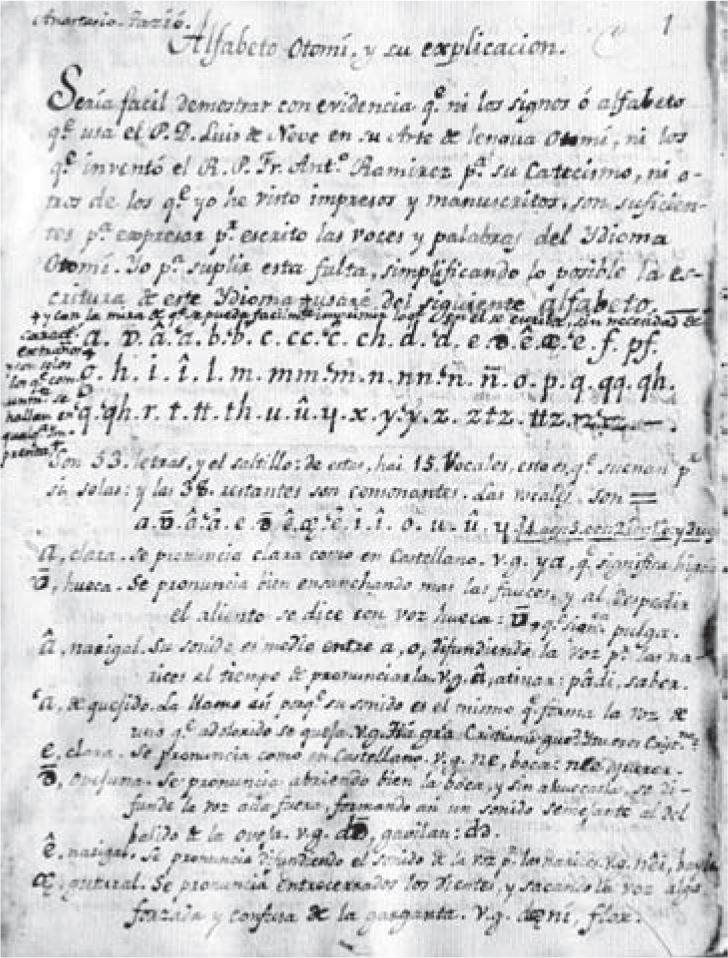 1
Alfabeto Otomí, y su explicacion.
Sería facil demostrar con evidencia q.e ni los signos ó alfabeto
q.e usa el P. D. Luis de Neve en su Arte de lengua Otomí, ni los
q.e inventó el R. P. Fr. Ant.o Ramirez p.a su Catecismo, ni o-
tros de los q.e yo he visto impresos y manuscritos, son suficien-
tes p.a expresar p.r escrito las voces y palabras del Ydioma
Otomí. Yo p.a suplir esta falta, simplificando lo posible la es-
critura de este Ydioma + usaré del siguiente alfabeto
+ y con la mira de q.e se pueda facilm.te imprimir lo q.e en él se escriba, sin necesidad de
caract.
extraños
con solos
los q.e com
unm.te se
hallan en
prenta +
c. h. i. î. l. m. mm. m. n. nn. ñ. n̄. o. p. q. qq. qh.
q. qh. r. t. tt. th. u. û. y. x. y. y. z. ztz. ttz.
Son 53. letras, y el saltillo: de estas, hai 15. Vocales, esto es, q.e suenan p.r
si solas: y las 38. restantes son consonantes. Las vocales son =
a, clara. Se pronuncia clara como en Castellano. v.g. ya, q.e significa
hueca. Se pronuncia bien ensanchando mas las fauces, y al despedir
el aliento se dice con voz hueca: q.e sign.ca pulga.
â, narigal. Su sonido es medio entre a, o, difundiendo la voz p.r las na-
rices el tiempo de pronunciarla. v.g. â, atinar: pâdi, saber.
'a, de quejido. La llamo así porq.e su sonido es el mismo q.e forma la voz de
uno q.e adolorido se queja. v.g.
e, clara. Se pronuncia como en Castellano. v.g. ne, boca: nee, querer.
ovejuna. Se pronuncia abriendo bien la boca, y sin ahuecarla, se di-
funde la voz acia fuera, formando así un sonido semejante al del
balido de la oveja. v.g. gavilan:
ê, narigal. Se pronuncia difundiendo el sonido de la voz p.r las narices. v.g. nêi,
æ, gutural. Se pronuncia entrecerrados los dientes, y sacando la voz algo
forzada y confusa de la garganta. v.g. dæní, flor.